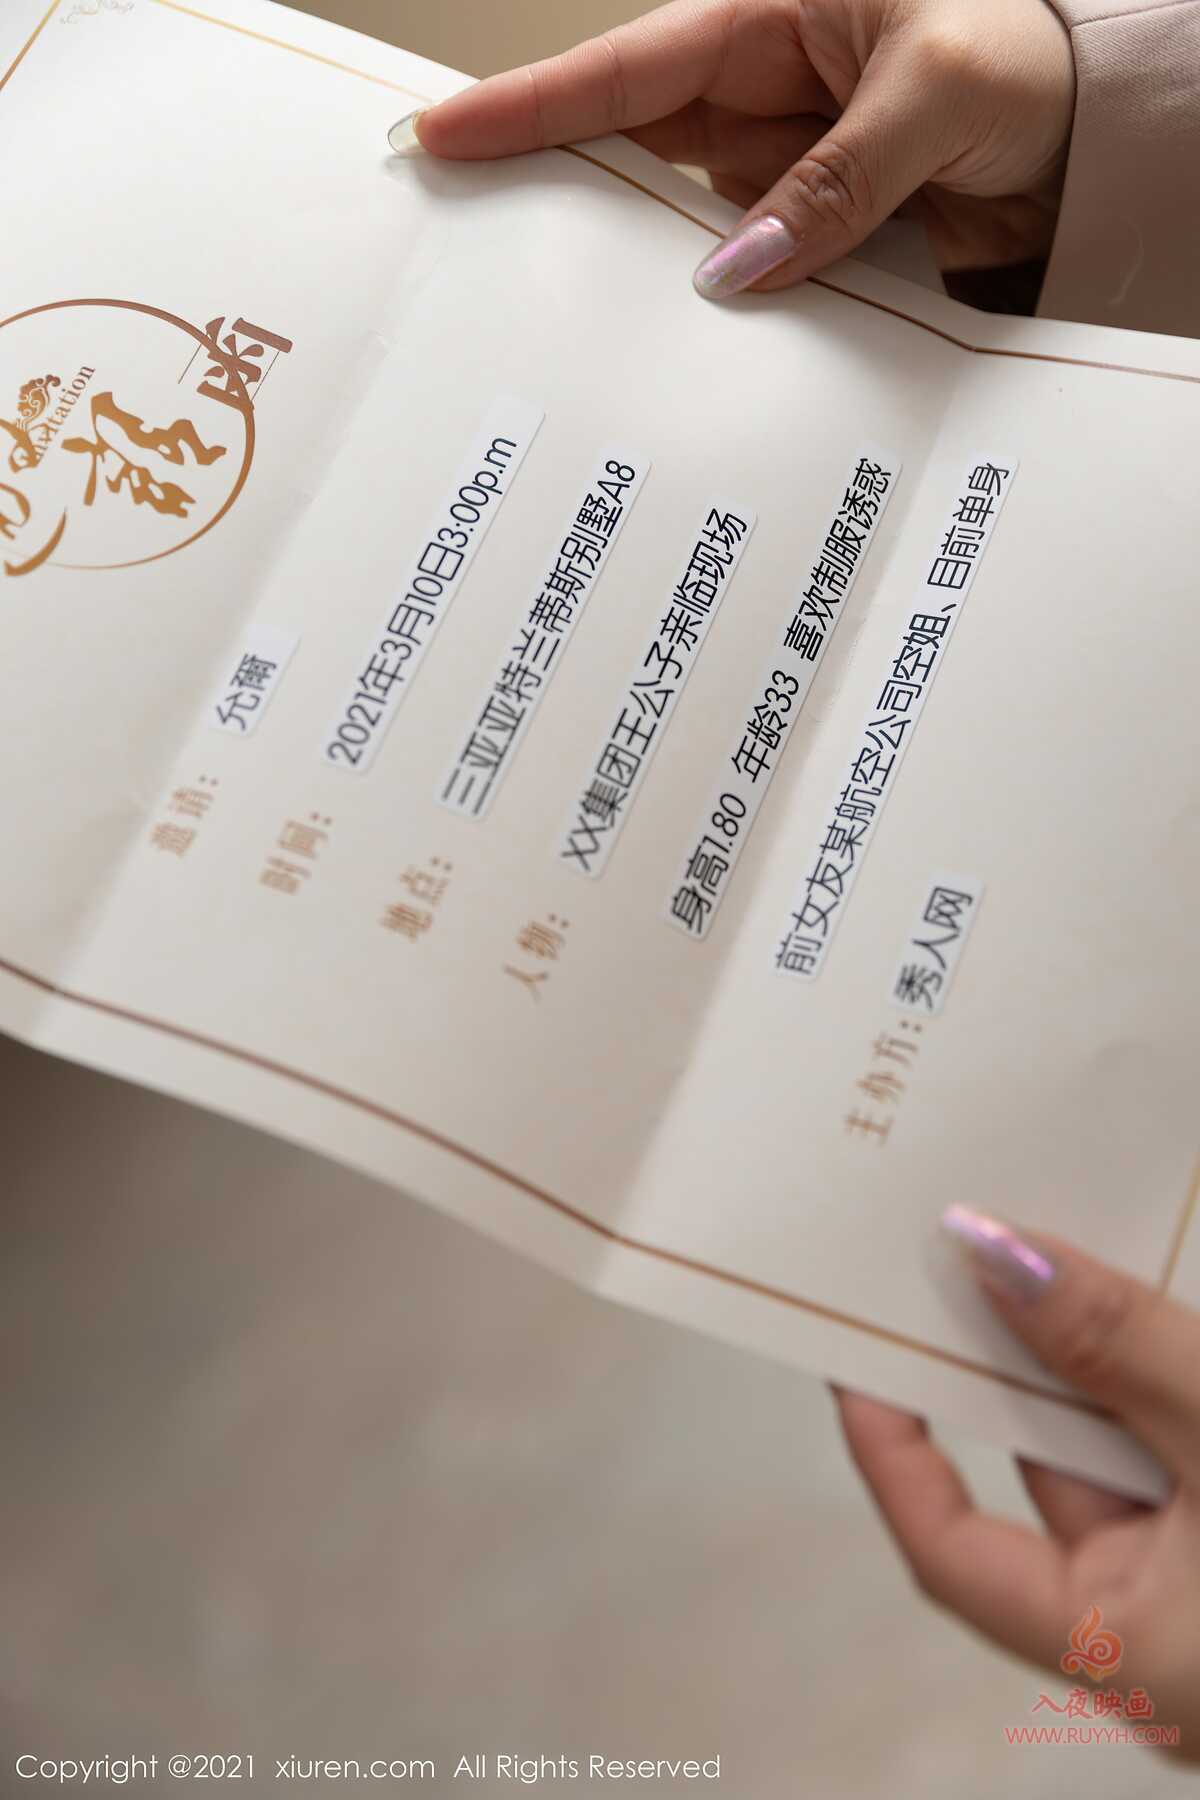 邀請函
Invitation
邀请：允爾
时间：2021年3月10日3:00p.m
地点：三亚亚特兰蒂斯别墅A8
人物：XX集团王公子亲临现场
身高1.80 年龄33 喜欢制服诱惑
前女友某航空公司空姐、目前单身
主办方：秀人网
入夜映画
WWW.RUYYH.COM
Copyright @2021 xiuren.com All Rights Reserved